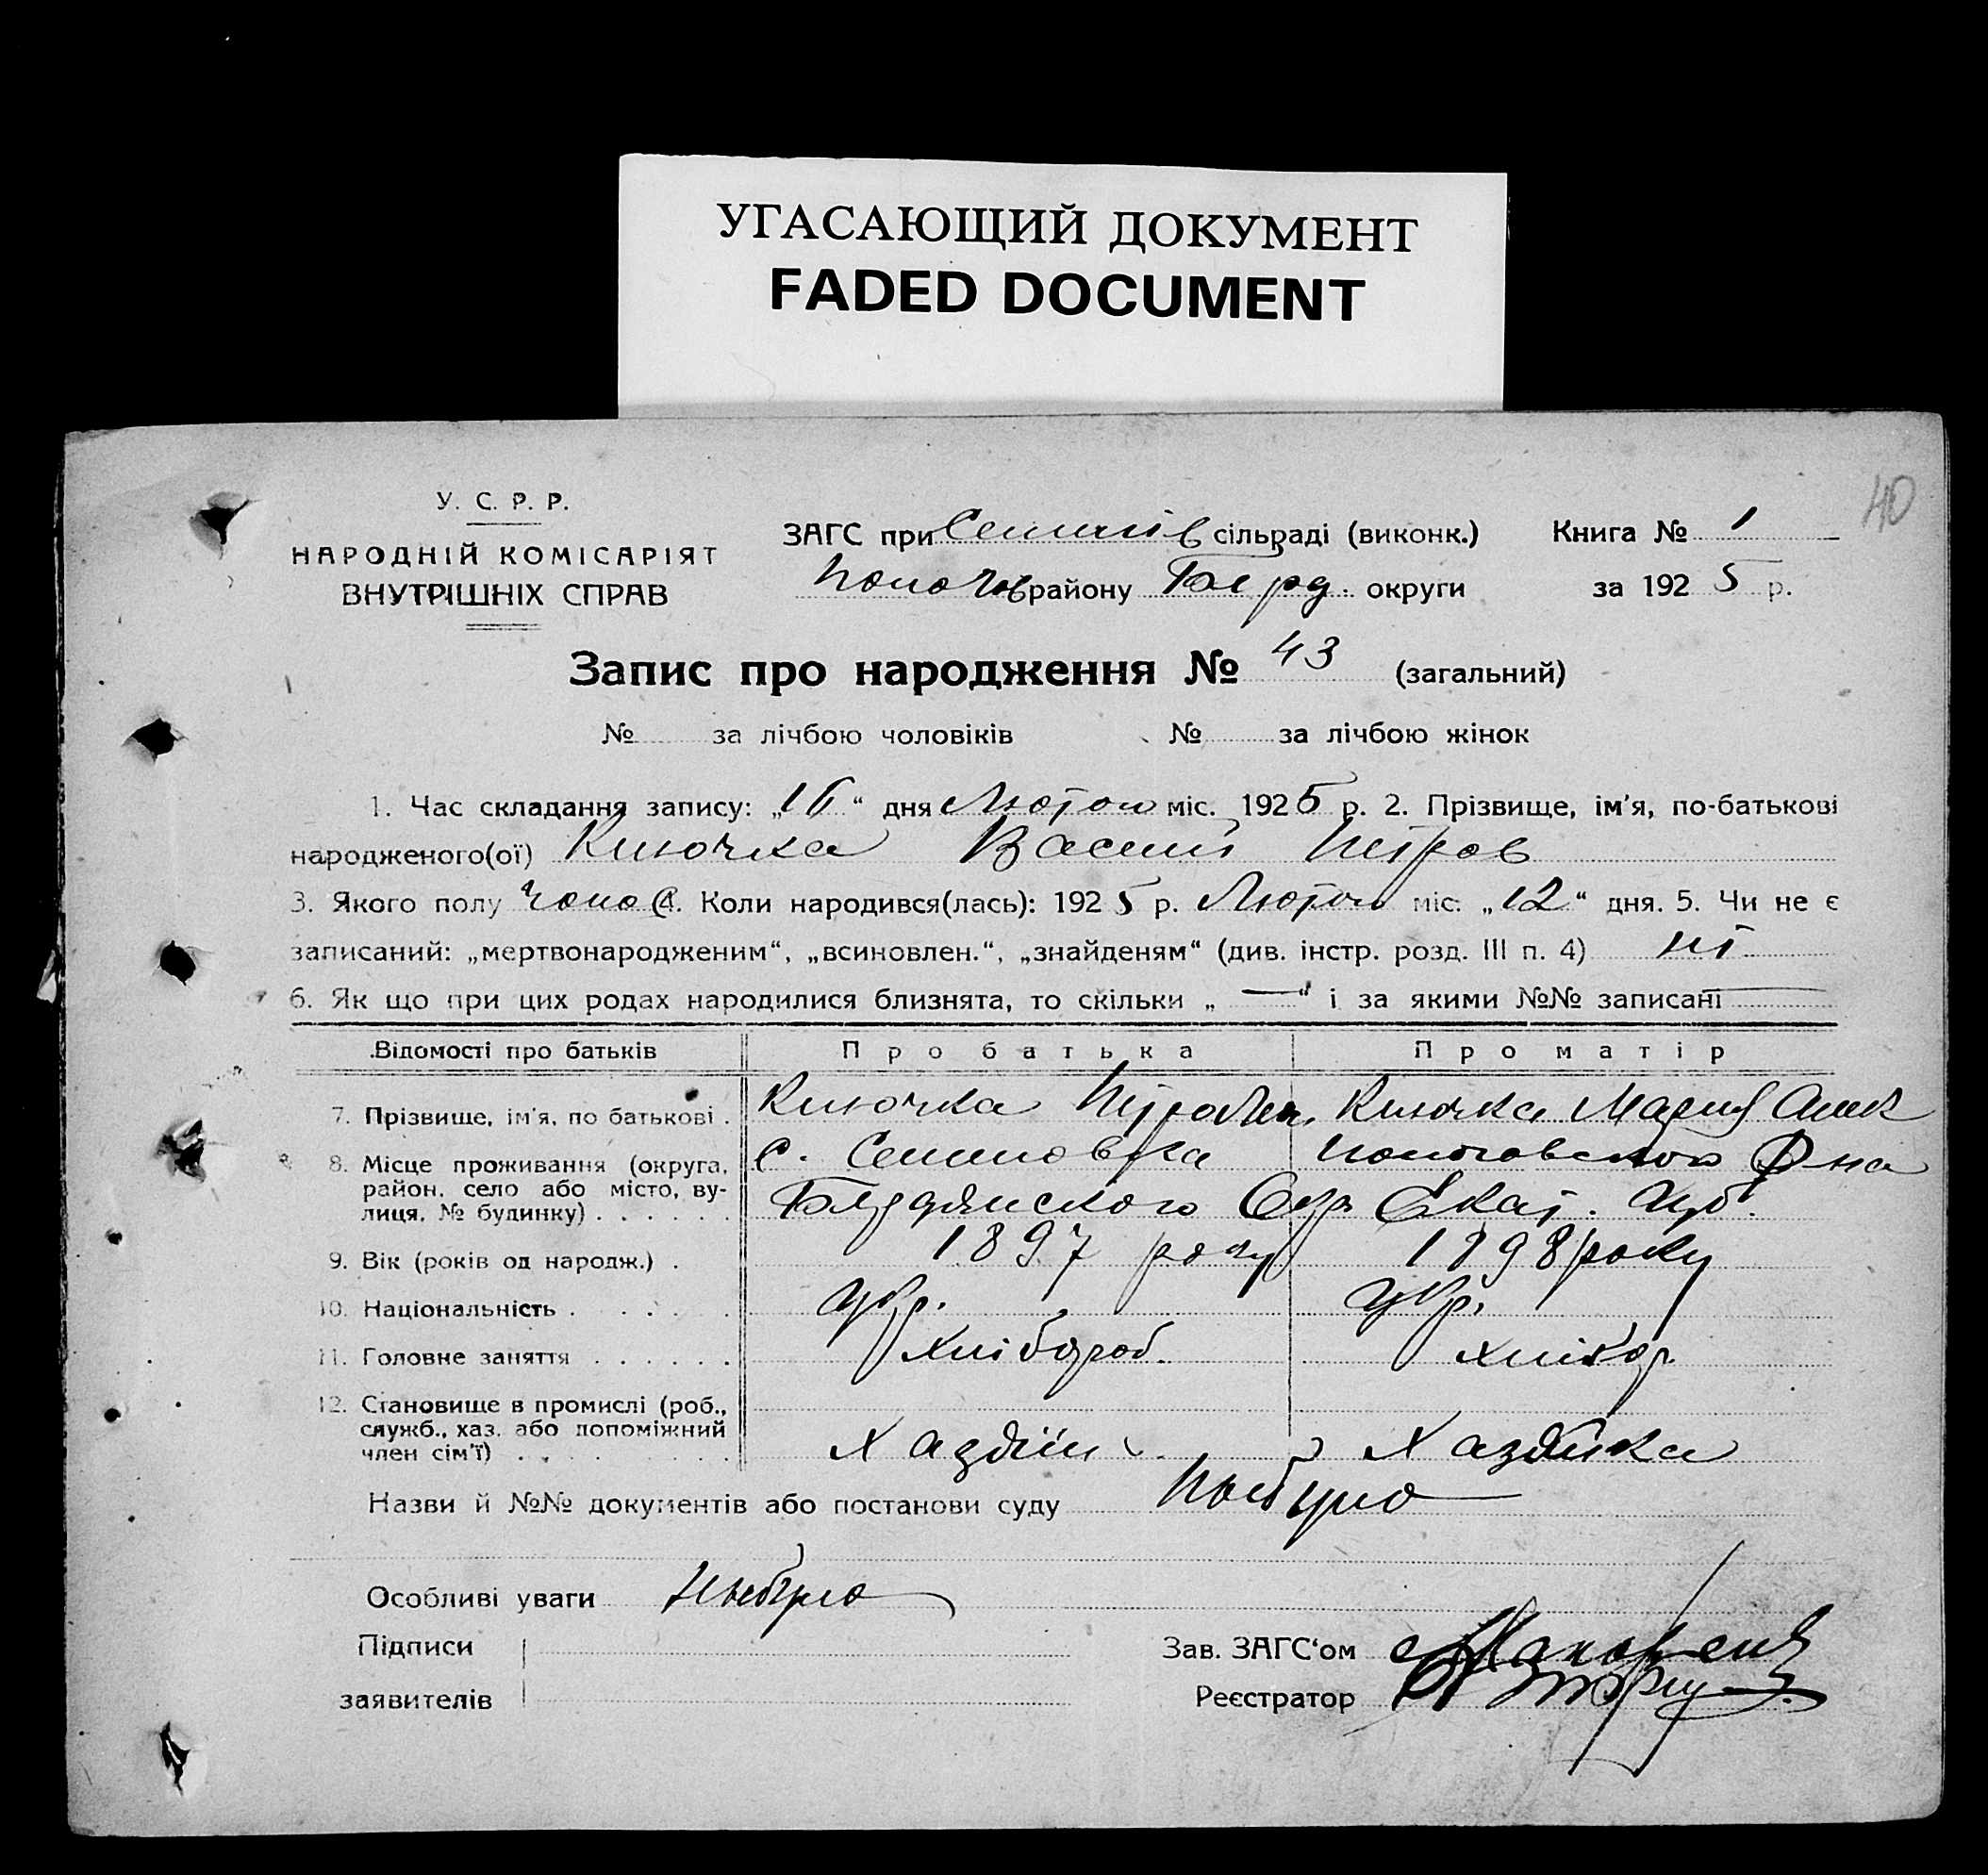 УГАСАЮЩИЙ ДОКУМЕНТ
FADED DOCUMENT
40
У. С. Р. Р.
НАРОДНІЙ КОМІСАРІЯТ
ВНУТРІШНІХ СПРАВ
ЗАГС при Семенів сільраді (виконк.) Книга № 1
Пологов району Берд. округи за 1925 р.
Запис про народження № 43 (загальний)
№ за лічбою чоловіків № за лічбою жінок
1. Час складання запису: „16“ дня Лютого міс. 1925 р. 2. Прізвище, ім'я, по-батькові
народженого(ої) Ключка Василь Петров
3. Якого полу Чолов 4. Коли народився(лась): 1925 р. Лютого міс. „12“ дня. 5. Чи не є
записаний: „мертвонародженим“, „всиновлен.“, „знайденям“ (див. інстр. розд. III п. 4) ні
6. Як що при цих родах народилися близнята, то скільки „—“ і за якими №№ записані —
Відомості про батьків Про батька Про матір
7. Прізвище, ім'я, по батькові . Ключка Петро Ключка Мария Алек
8. Місце проживання (округа, с. Семеновка Пологовского Р-на
район, село або місто, ву-
лиця, № будинку) . . . . . . Бердянского Окр. Екат. губ.
9. Вік (років од народж.) . 1897 року 1898 року
10. Національність . . . . . укр. укр.
11. Головне заняття . . . . . . Хлібороб. хлібор.
12. Становище в промислі (роб.,
служб., хаз. або допоміжний
член сім'ї) . . . . . . . . Хазяїн Хазяйка
Назви й №№ документів або постанови суду Небуло
Особливі уваги Небуло
Підписи Зав. ЗАГС‘ом
заявителів Реєстратор